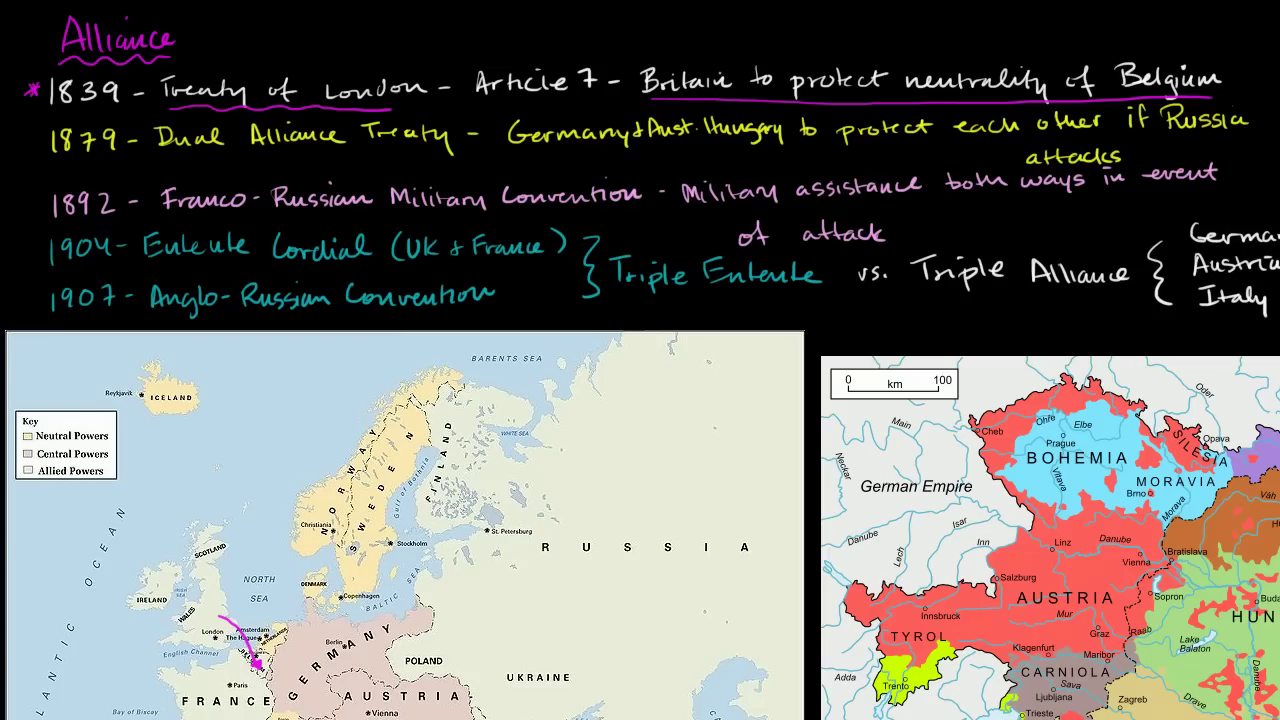 Alliance
*1839 - Treaty of London - Article 7 - Britain to protect neutrality of Belgium
1879 - Dual Alliance Treaty - Germany & Aust. Hungary to protect each other if Russia
attacks
1892 - Franco-Russian Military Convention - Military assistance both ways in event
of attack
1904 - Entente Cordial (UK & France)
1907 - Anglo-Russian Convention
Triple Entente vs. Triple Alliance
Germa
Austria
Italy
BARENTS SEA
Reykjavik
ICELAND
Key
Neutral Powers
Central Powers
Allied Powers
WHITE SEA
NORWAY
SWEDEN
FINLAND
Gulf of Bothnia
Christiania
Stockholm
St. Petersburg
RUSSIA
ATLANTIC OCEAN
SCOTLAND
NORTH
SEA
DENMARK
Copenhagen
BALTIC SEA
IRELAND
IRISH SEA
WALES
London
Amsterdam
The Hague
NETHERLANDS
English Channel
Berlin
GERMANY
POLAND
UKRAINE
Paris
FRANCE
AUSTRIA
Vienna
Bay of Biscay
0 km 100
Oder
Main
Cheb
Ohře
Elbe
Prague
BOHEMIA
Vltava
SILESIA
Opava
MORAVIA
Brno
Morava
Váh
Neckar
German Empire
Isar
Danube
Lech
Inn
Linz
Danube
Vienna
Bratislava
Salzburg
AUSTRIA
Sopron
Buda
Innsbruck
Mur
HUN
TYROL
Graz
Raab
Lake
Balaton
Klagenfurt
Maribor
Adda
Trento
CARNIOLA
Sava
Ljubljana
Zagreb
Drave
Danube
Trieste